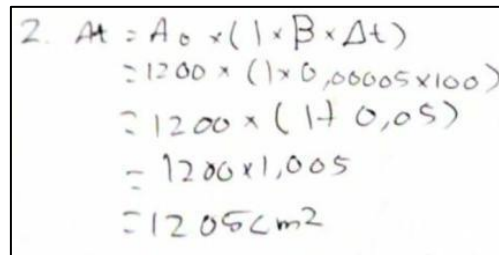 2. At = A0 × (1 × β × Δt)
= 1200 × (1 × 0,00005 × 100)
= 1200 × (1 + 0,05)
= 1200 × 1,005
= 1205 cm2